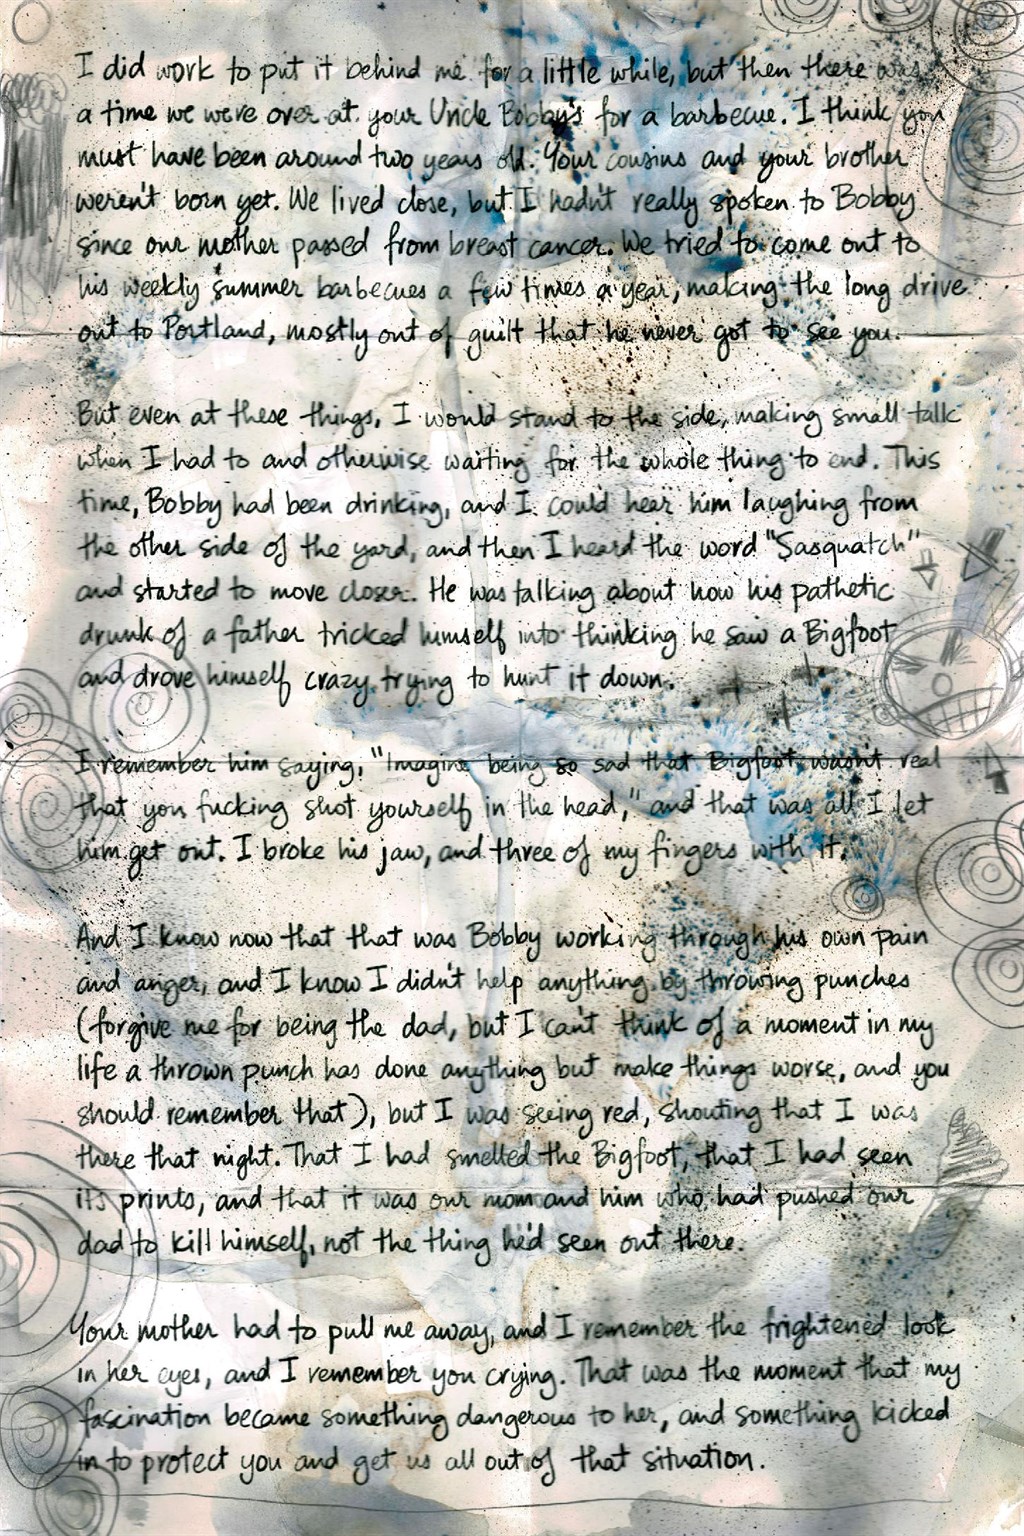 I did work to put it behind me for a little while, but then there was
a time we were over at your Uncle Bobby's for a barbecue. I think you
must have been around two years old. Your cousins and your brother
weren't born yet. We lived close, but I hadn't really spoken to Bobby
since our mother passed from breast cancer. We tried to come out to
his weekly summer barbecues a few times a year, making the long drive
out to Portland, mostly out of guilt that he never got to see you.
But even at these things, I would stand to the side, making small talk
when I had to and otherwise waiting for the whole thing to end. This
time, Bobby had been drinking, and I could hear him laughing from
the other side of the yard, and then I heard the word "Sasquatch"
and started to move closer. He was talking about how his pathetic
drunk of a father tricked himself into thinking he saw a Bigfoot
and drove himself crazy trying to hunt it down.
I remember him saying, "Imagine being so sad that Bigfoot wasn't real
that you fucking shot yourself in the head," and that was all I let
him get out. I broke his jaw, and three of my fingers with it.
And I know now that that was Bobby working through his own pain
and anger, and I know I didn't help anything by throwing punches
(forgive me for being the dad, but I can't think of a moment in my
life a thrown punch has done anything but make things worse, and you
should remember that), but I was seeing red, shouting that I was
there that night. That I had smelled the Bigfoot, that I had seen
its prints, and that it was our mom and him who had pushed our
dad to kill himself, not the thing he'd seen out there.
Your mother had to pull me away, and I remember the frightened look
in her eyes, and I remember you crying. That was the moment that my
fascination became something dangerous to her, and something kicked
in to protect you and get us all out of that situation.